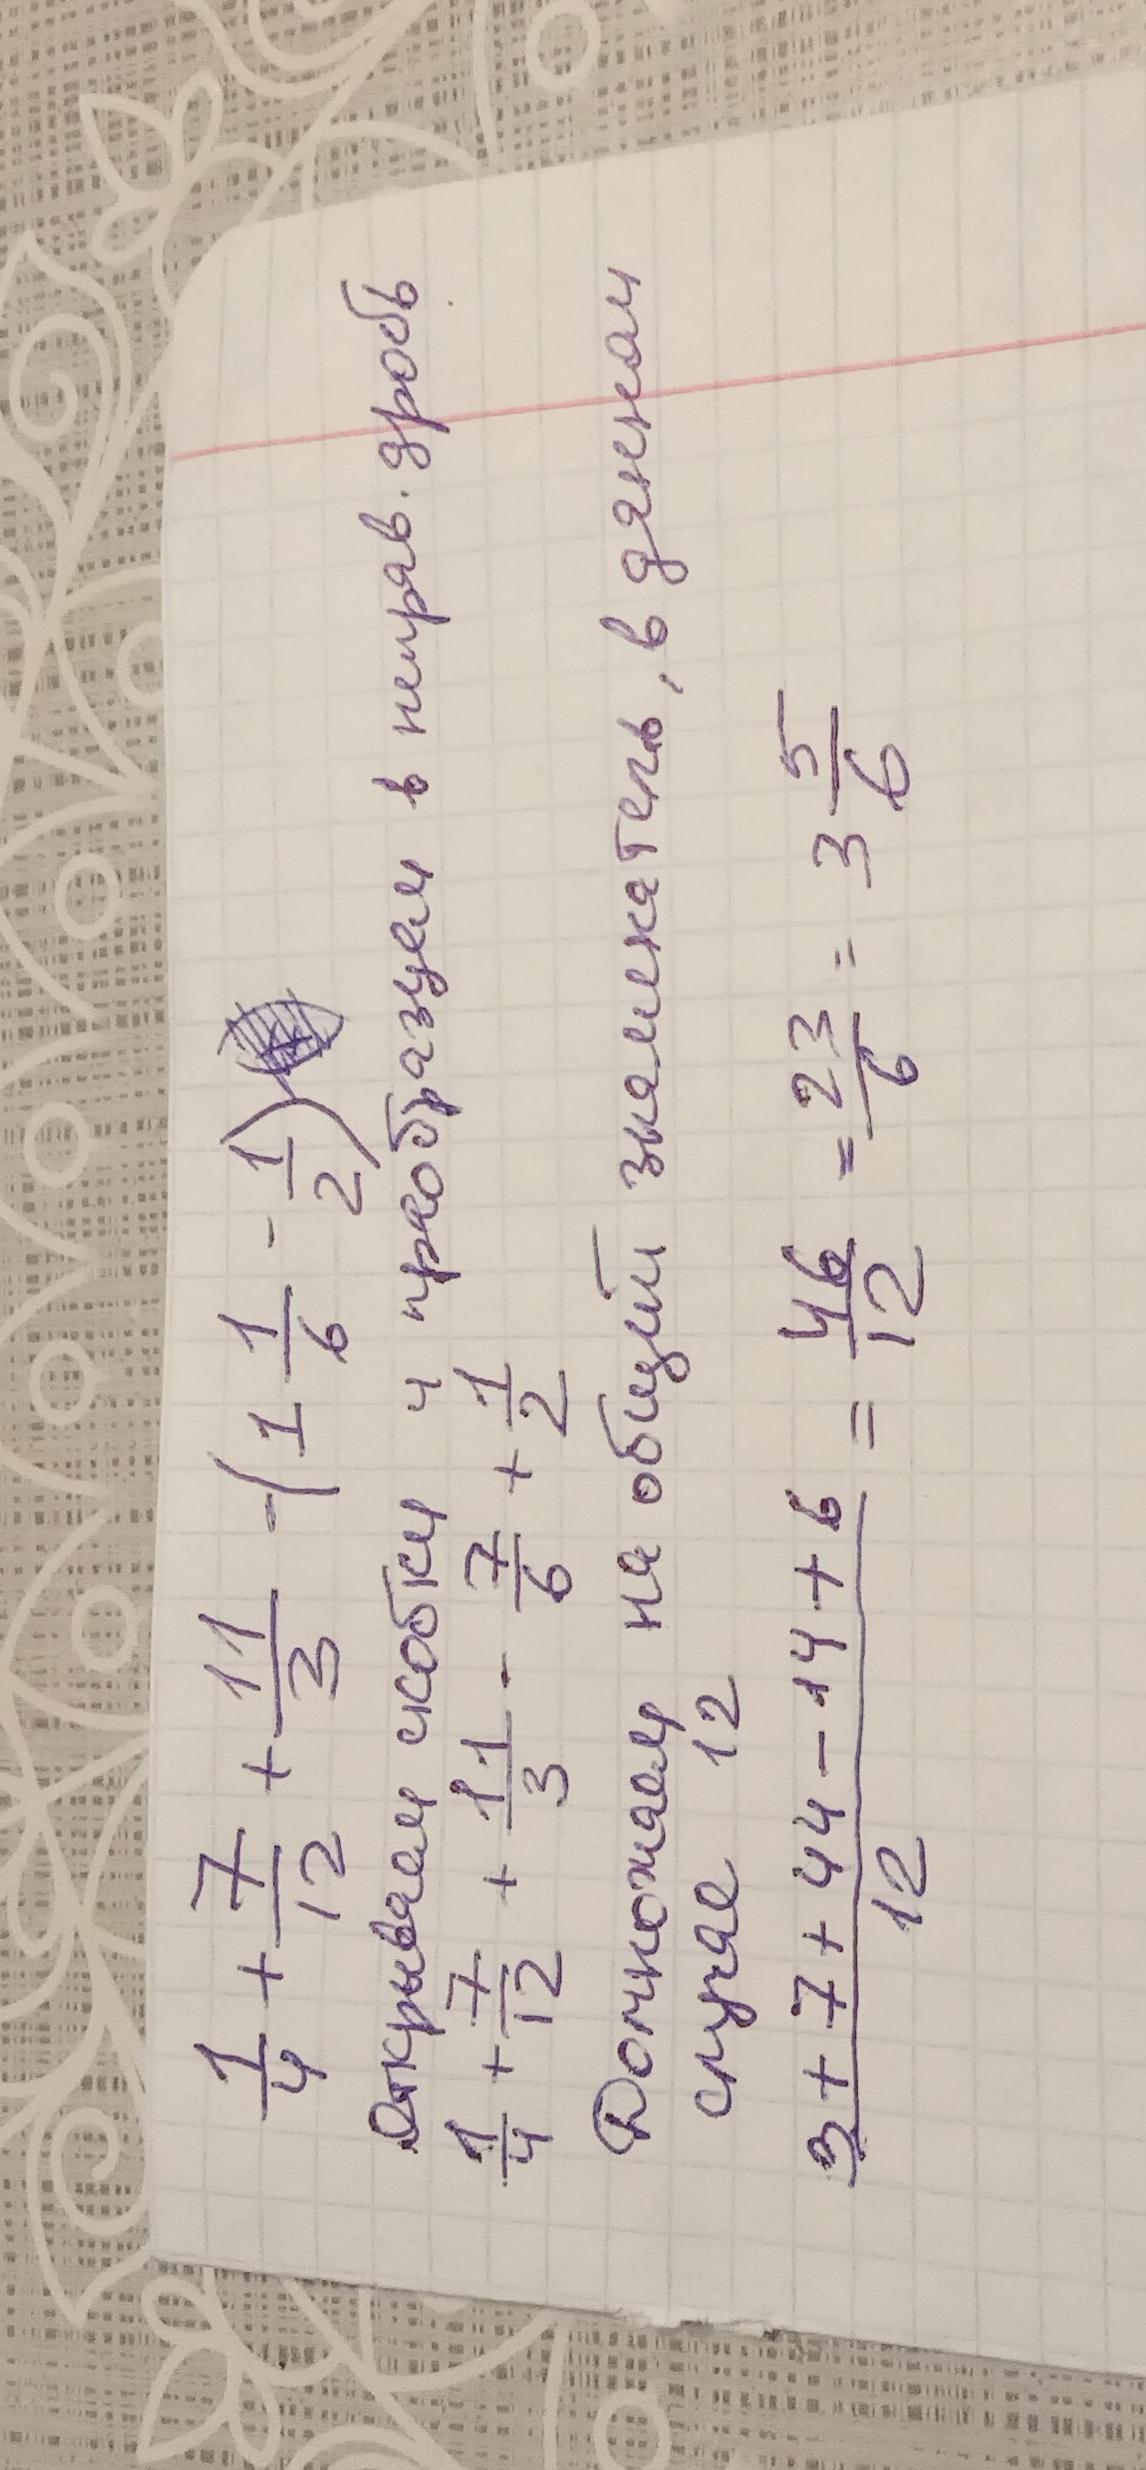 1/4 + 7/12 + 11/3 - (1 1/6 - 1/2)
Открываем скобки и преобразуем в неправ. дробь
1/4 + 7/12 + 11/3 - 7/6 + 1/2
Домножаем на общий знаменатель, в данном
случае 12
3 + 7 + 44 - 14 + 6/12 = 46/12 = 23/6 = 3 5/6